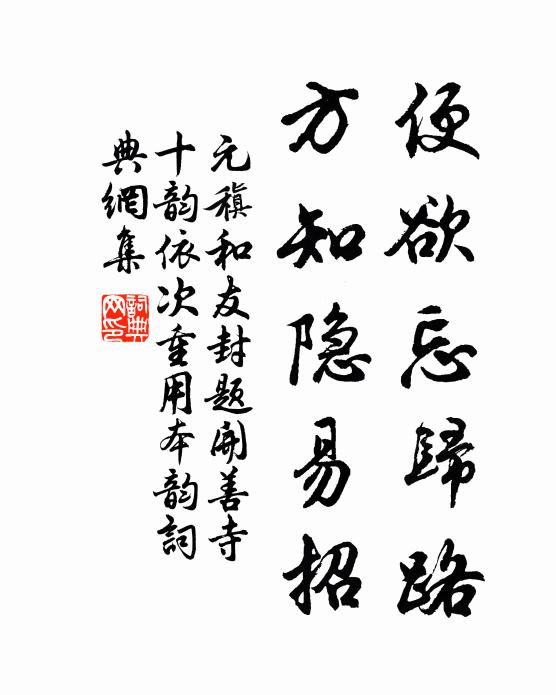 便欲忘歸路
方知隐易招
元稹和友封题開善寺
十韵依次重用本韵詞
典網集
詞典
网印